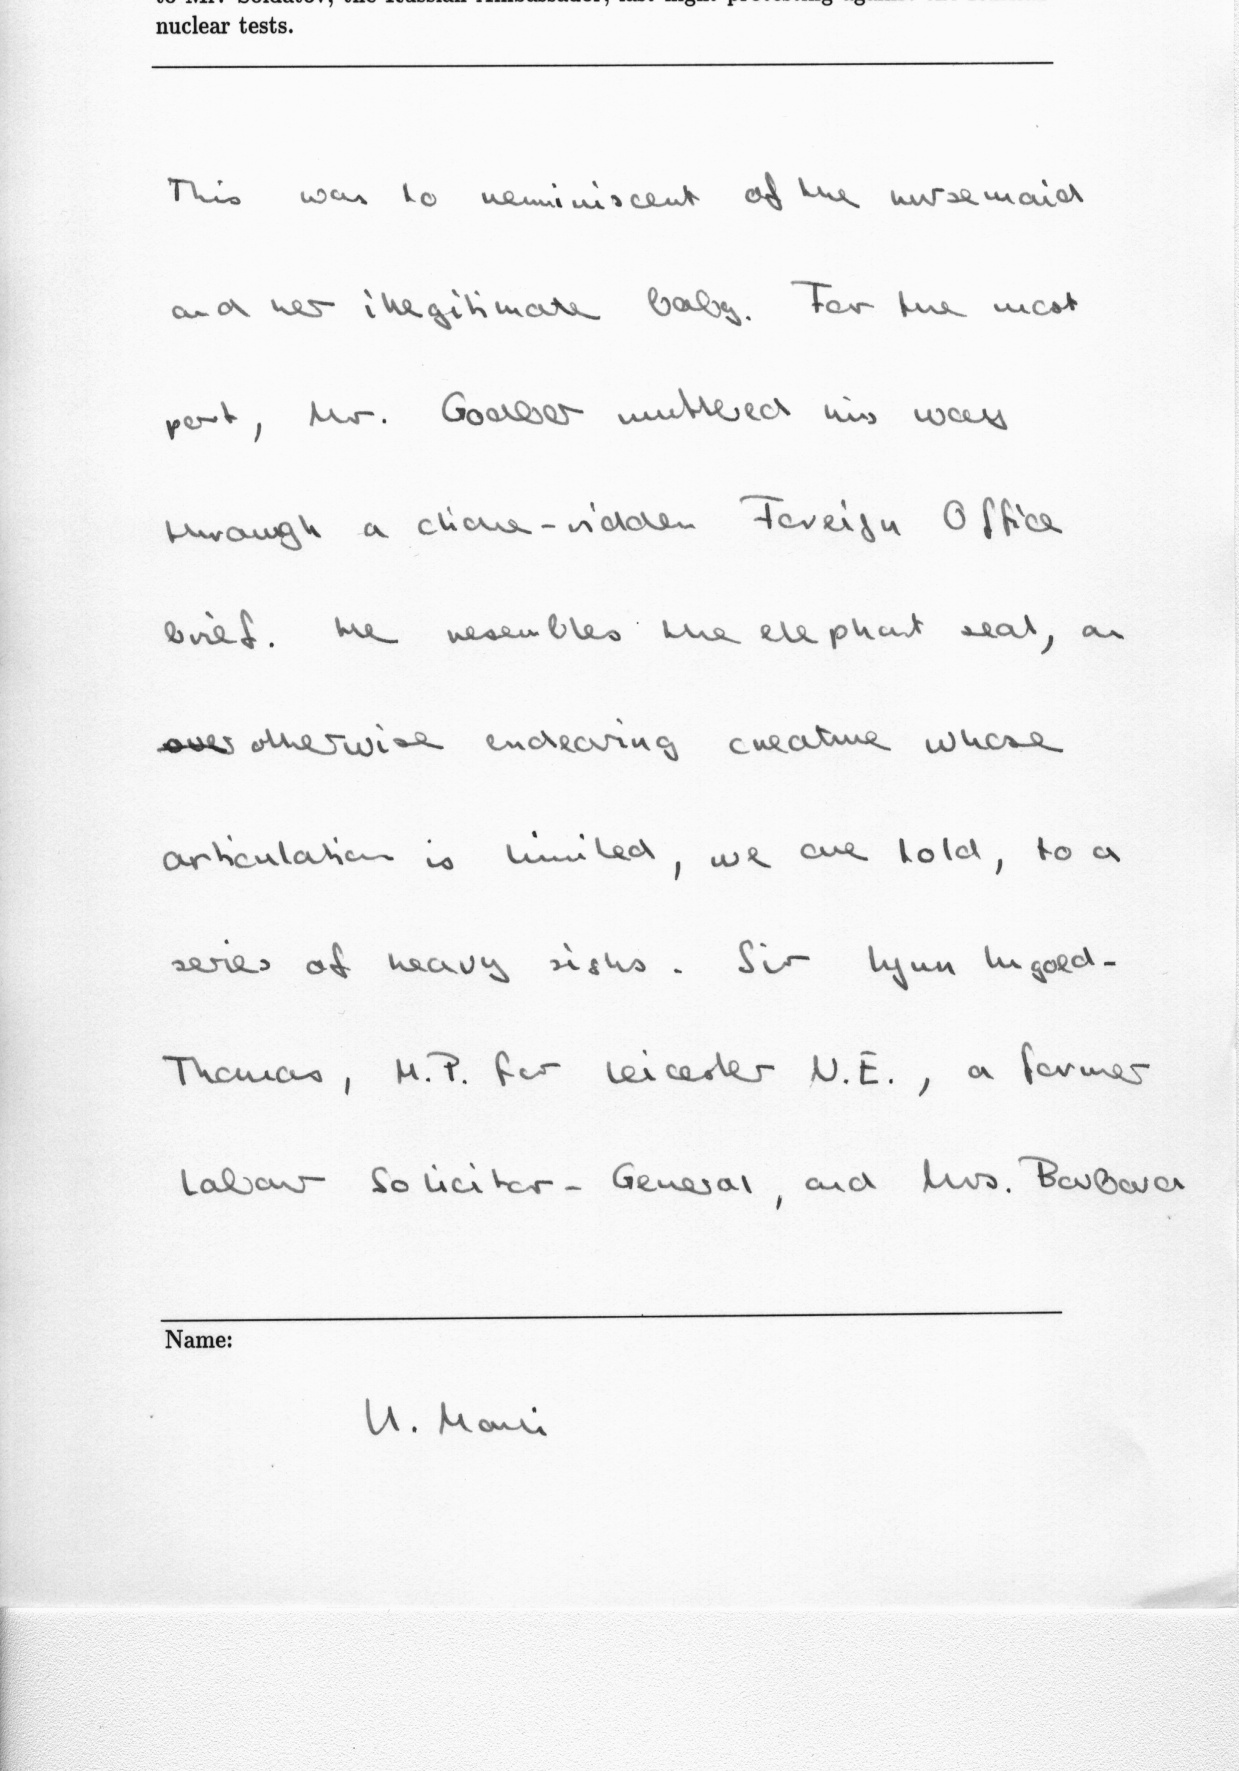 nuclear tests.
This was to reminiscent of the nursemaid
and her illegitimate baby. For the most
part, Mr. Godber muttered his way
through a cliche-ridden Foreign Office
brief. He resembles the elephant seal, an
otherwise endearing creature whose
articulation is limited, we are told, to a
series of heavy sighs. Sir Lynn Ungoed-
Thomas, M.P. for Leicester N.E., a former
Labour Solicitor-General, and Mrs. Barbara
Name:
U.